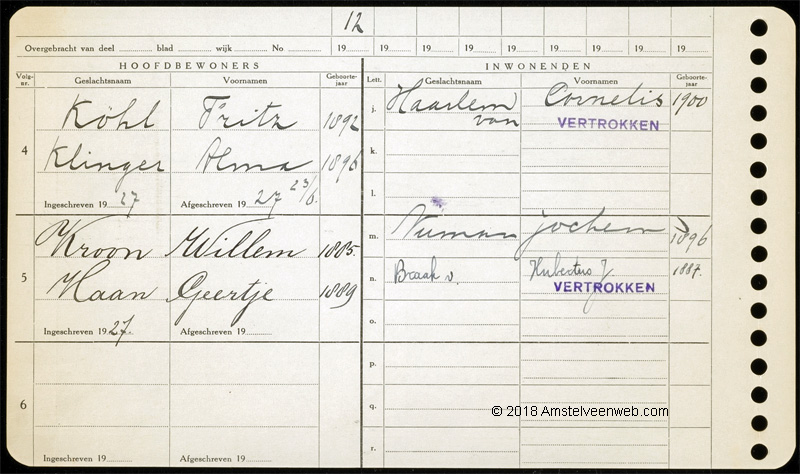 12
Overgebracht van deel ......... blad ......... wijk ......... No ......... 19 ......... 19 ......... 19 ......... 19 ......... 19 ......... 19 ......... 19 ......... 19 ......... 19 .........
HOOFDBEWONERS
Volg-nr. Geslachtsnaam Voornamen Geboorte-jaar
4 Köhl Fritz 1892
Klinger Alma 1896
Ingeschreven 19 27 Afgeschreven 19 27 23/6.
5 Kroon Willem 1885.
Haan Geertje 1889
Ingeschreven 19 27. Afgeschreven 19.........
6
Ingeschreven 19......... Afgeschreven 19.........
INWONENDEN
Lett. Geslachtsnaam Voornamen Geboorte-jaar
j. Haarlem van Cornelis 1900
VERTROKKEN
k.
l.
m. Numan Jochem 1896
n. Braak v. Hubertus J 1887.
VERTROKKEN
o.
p.
q.
r.
© 2018 Amstelveenweb.com